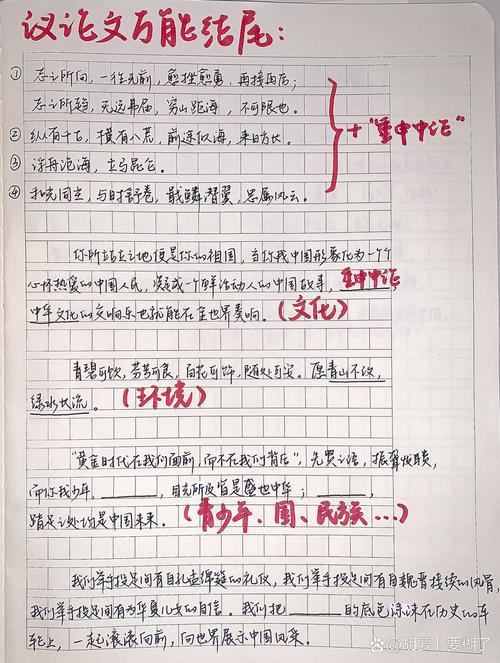 议论文万能结尾:
① 志之所向,一往无前,愈挫愈勇,再接再厉;
志之所趋,无远弗届,穷山距海,不可限也。
② 纵有千古,横有八荒,前途似海,来日方长。
③ 浮舟沧海,立马昆仑。
④ 和光同尘,与时舒卷,戢鳞潜翼,思属风云。
+"重申中论"
你所站立之地便是你的祖国,当你我中国形象化为一个个
心怀热爱的中国人民,凝成一个鲜活动人的中国故事,重申中论,
中华文化的交响乐也就能在全世界奏响。(文化)
青碧可饮,芬芳可食,白花可饰,随处可安。愿青山不改,
绿水长流。(环境)
"黄金时代在我们面前,而不在我们背后",先贤之语,振聋发聩,
而你我少年,________,目光所及皆是盛世中华;______,
踏足之处均是中国未来。(青少年、国、民族...)
我们举手投足间有自孔孟得疑的礼仪,我们举手投足间有自魏晋接续的风骨,
我们举手投足间有为华夏儿女的自信。我们把________的底色涂抹在历史的车
轮上,一起滚滚向前,向世界展示中国风采。
胡萝卜要糊了